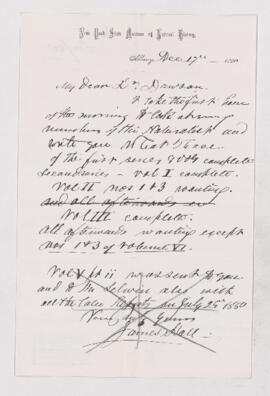 New York State Museum of Natural History
Albany Dec 17th 1880
My Dear Dr. Dawson.
I take the first hour
of the morning to take
numbers of the Naturalist and
write you what I have.
of the first series 8 vols complete
Second series - vol I complete.
Vol II nos 1 & 3 wanting.
and all afterwards
Vol III complete.
All afterwards wanting except
nos 1 & 3 of Volume VI.
Vol V pt ii was sent to you
and to Mr Selwyn also with
all the later Reports on July 29 1880
Yours
James Hall